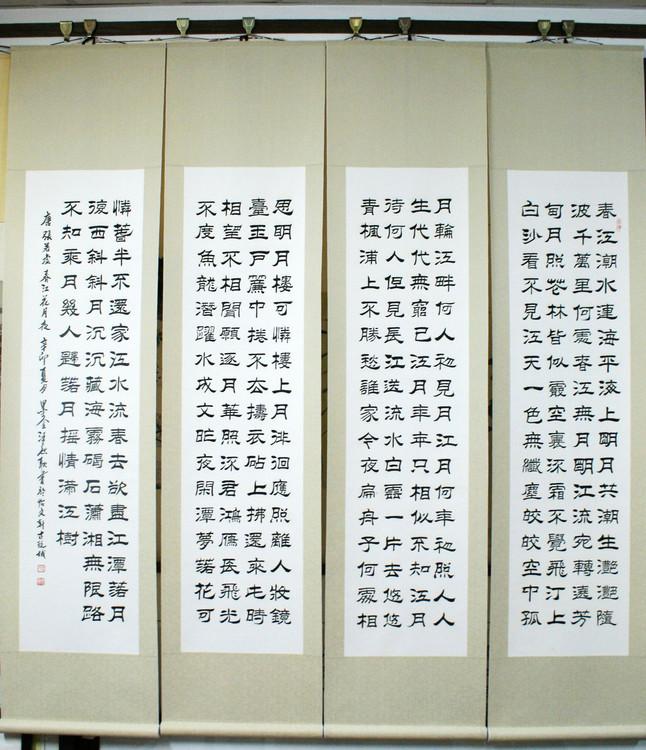 春江潮水連海平海上明月共潮生灧灧隨
波千萬里何處春江無月明江流宛轉遶芳
甸月照花林皆似霰空裏流霜不覺飛汀上
白沙看不見江天一色無纖塵皎皎空中孤
月輪江畔何人初見月江月何年初照人人
生代代無窮已江月年年只相似不知江月
待何人但見長江送流水白雲一片去悠悠
青楓浦上不勝愁誰家今夜扁舟子何處相
思明月樓可憐樓上月徘徊應照離人妝鏡
臺玉戶簾中捲不去擣衣砧上拂還來此時
相望不相聞願逐月華照流君鴻雁長飛光
不度魚龍潛躍水成文昨夜閑潭夢落花可
憐春半不還家江水流春去欲盡江潭落月
復西斜斜月沉沉藏海霧碣石瀟湘無限路
不知乘月幾人歸落月搖情滿江樹
唐張若虛春江花月夜辛卯夏月